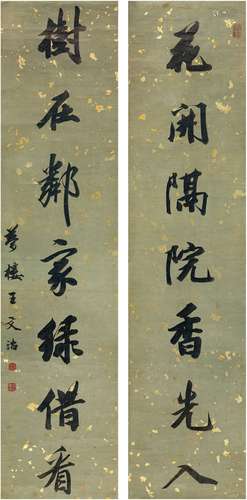 花開隔院香先入
樹在鄰家綠借看
夢樓王文治